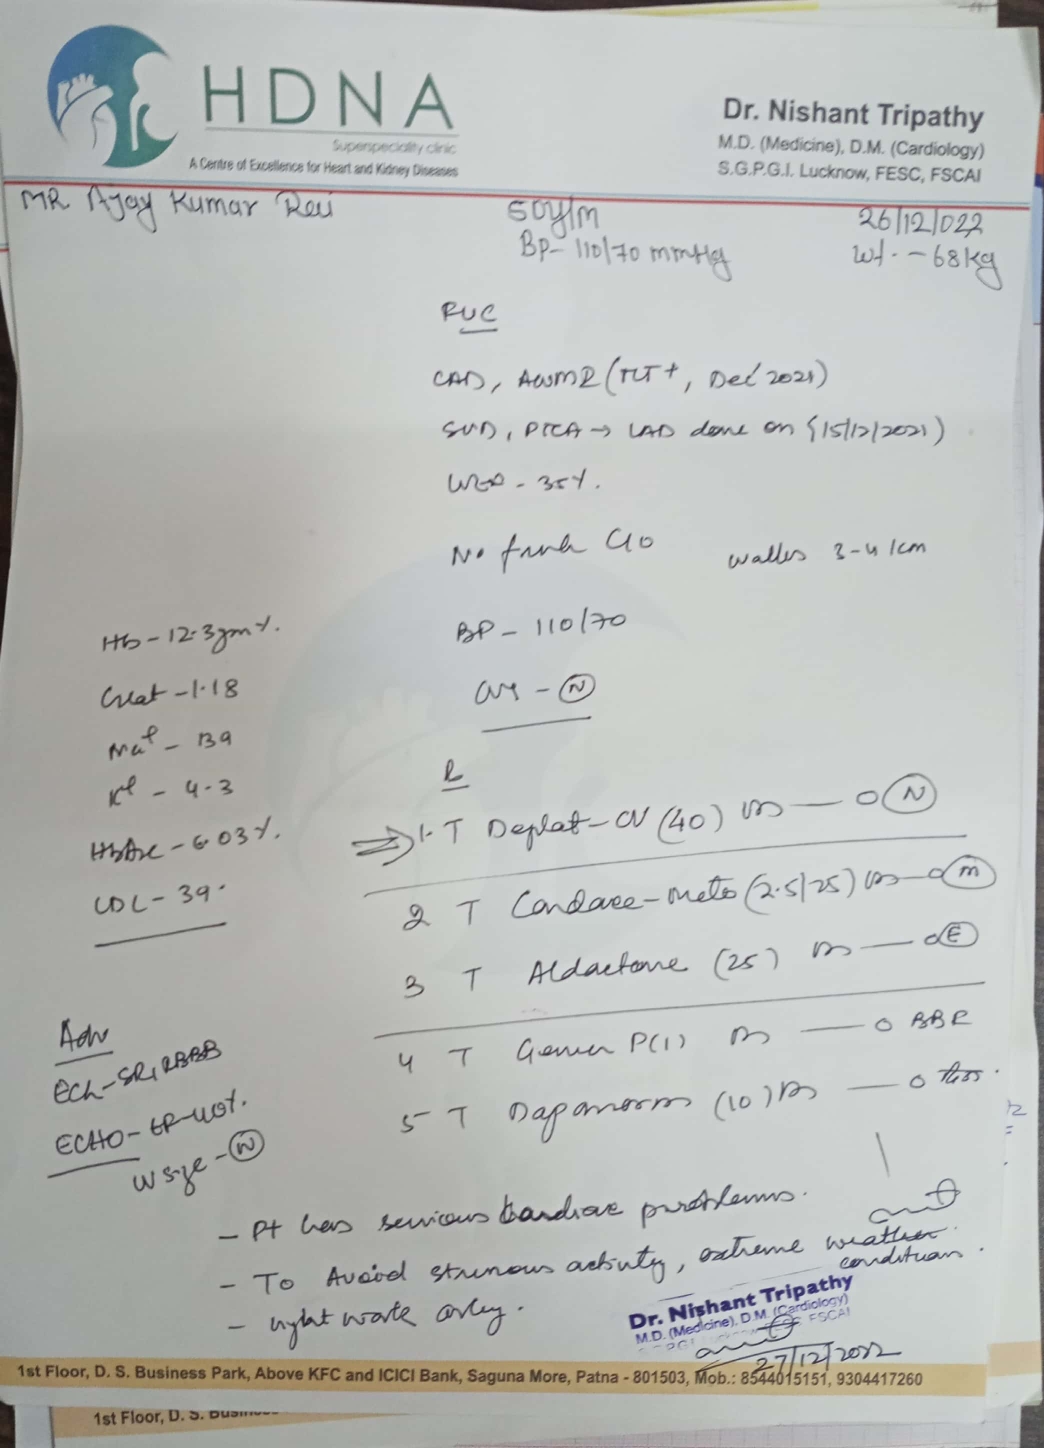 HDNA
Superspeciality clinic
A Centre of Excellence for Heart and Kidney Diseases
Dr. Nishant Tripathy
M.D. (Medicine), D.M. (Cardiology)
S.G.P.G.I. Lucknow, FESC, FSCAI
MR Ajay Kumar
50y/m
26/12/022
BP- 110/70 mmHg
wt. - 68kg
CAD, AWMI (TLT+, Dec 2021)
SVD, PTCA → LAD done on (15/12/2021)
- 35%.
No fresh C/o
walks 3-4 km
Hb - 12.3gm%.
BP - 110/70
Creat - 1.18
- (N)
Na+ - 139
K+ - 4.3
HbA1c - 6.03%.
LDL - 39.
1. T Deplat-CV (40) — 0 (N)
2 T Cardace-Meto (2.5/25) — 0 (M)
3 T Aldactone (25) — 0 (E)
4 T P(1) — 0 BBF
5 T Dapanorm (10) — 0
Adv
ECG - SR, RBBB
ECHO - EF-40%.
- (N)
- Pt has serious cardiac problems.
- To Avoid strenuous activity, extreme weather
conditions.
- light work only.
Dr. Nishant Tripathy
M.D. (Medicine), D.M. (Cardiology)
FSCAI
27/12/2022
1st Floor, D. S. Business Park, Above KFC and ICICI Bank, Saguna More, Patna - 801503, Mob.: 8544015151, 9304417260
1st Floor, D. S.